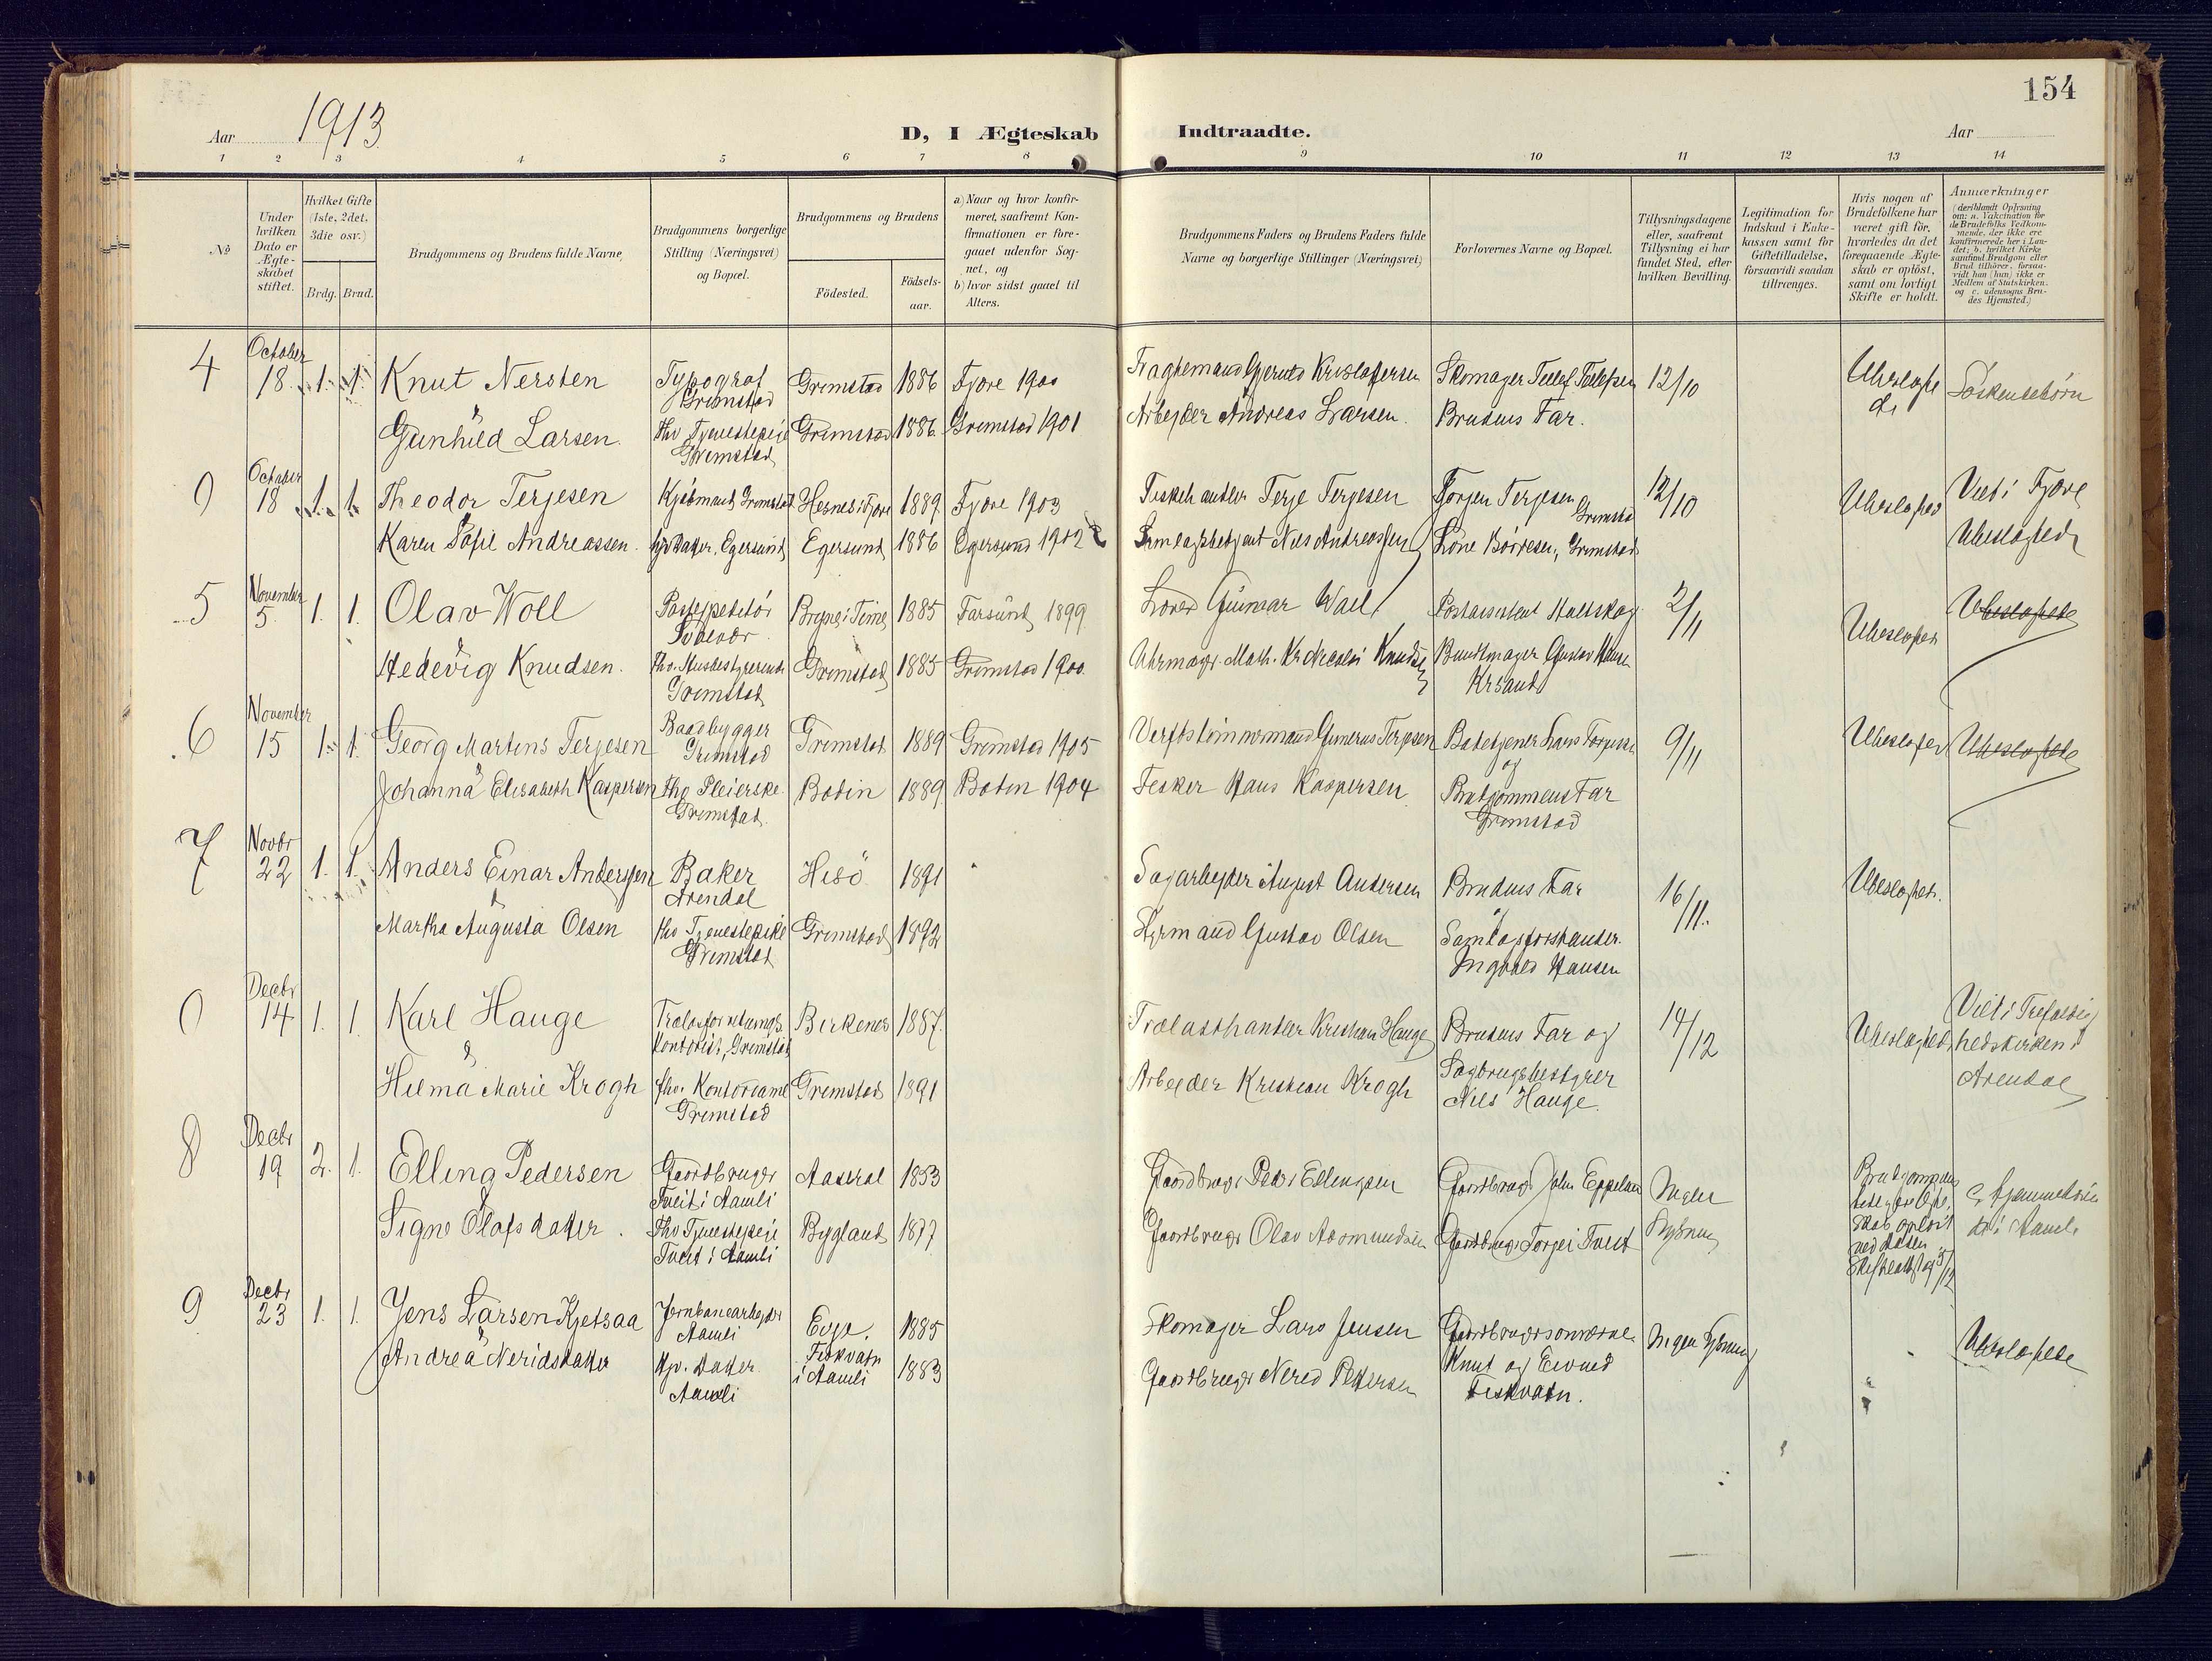 154
Aar 1913
D, I Ægteskab Indtraadte.
Aar
1 2 3 4 5 6 7 8 9 10 11 12 13 14
No
Under hvilken Dato er Ægteskabet stiftet.
Hvilket Gifte (1ste, 2det, 3die osv.)
Brdg. Brud.
Brudgommens og Brudens fulde Navne.
Brudgommens borgerlige Stilling (Næringsvei) og Bopæl.
Brudgommens og Brudens
Födested.
Födselsaar.
a) Naar og hvor konfirmeret, saafremt Konfirmationen er foregaaet udenfor Sognet, og
b) hvor sidst gaaet til Alters.
Brudgommens Faders og Brudens Faders fulde Navne og borgerlige Stillinger (Næringsvei)
Forlovernes Navne og Bopæl.
Tillysningsdagene eller, saafremt Tillysning ei har fundet Sted, efter hvilken Bevilling.
Legitimation for Indskud i Enkekassen samt for Giftetilladelse, forsaavidt saadan tiltrænges.
Hvis nogen af Brudefolkene har været gift för, hvorledes da det foregaaende Ægteskab er oplöst, samt om lovligt Skifte er holdt.
Anmærkninger
(deriblandt Oplysning om: a. Vakcination for de Brudefolks Vedkommende, der ikke ere konfirmerede her i Landet; b. hvilket Kirkesamfund Brudgom eller Brud tilhörer, forsaavidt han (hun) ikke er Medlem af Statskirken, og c. udensogns Brudes Hjemsted.)
4 October 18. 1. 1. Knut Nersten Typograf Grimstad Grimstad 1886 Fjære 1900 Skomager Tellef Tellefsen 12/10 Söskendebörn
& Gunhild Larsen. Grimstad Grimstad 1886. Grimstad 1901 Arbejder Andreas Larsen. Brudens Far.
0 October 18 1. 1. Theodor Terjesen Kjöbmand, Grimstad. Hesnes i Fjære 1889. Fjære 1903 Fiskehandler Terje Terjesen Jörgen Terjesen Grimstad 12/10 Ubeslægted Viet i Fjære
& Karen Sofie Andreassen. Egersund, Egersund 1886 Egersund 1902 Nils Andreassen Grimstad Ubeslægtede
5 November 5. 1. 1. Olav Woll Postexpeditör Svolvær 1885 Farsund 1899 2/11 Ubeslægted Ubeslægtede
& Hedevig Knudsen. Grimstad Grimstad 1885 Grimstad 1900. Buntmager Gustav Hansen Krsand
6 November 15 1. 1. Georg Martins Terjesen Baadbygger Grimstad Grimstad 1889 Grimstad 1905 Verftstömmermand Gunerus Terjesen og 9/11 Ubeslægted Ubeslægtede
& Johanna Elisabeth Kaspersen fhv Pleierske Grimstad. Bodin 1889 Bodin 1904 Fisker Hans Kaspersen Brudgommens Far Grimstad
7 Novbr 22 1. 1. Anders Einar Anderssen Baker Arendal Hisö 1891 Sagarbejder August Andersen Brudens Far & 16/11. Ubeslægted.
& Martha Augusta Olsen fhv Tjenestepike Grimstad Grimstad 1892 Styrmand Gustav Olsen Ingvald Hansen
0 Decbr 14 1. 1. Karl Hauge Kontorist, Grimstad Birkenes 1887. Trælasthandler Kristian Hauge Brudens Far og 14/12 Ubeslægted Viet i Trefoldighedskirken i Arendal
& Hilma Marie Krogh fhv. Kontordame Grimstad Grimstad 1891 Arbejder Kristian Krogh Sagbrugsbestyrer Nils Hauge.
8 Decbr 19 2. 1. Elling Pedersen Gaardbruger Tveit i Aamli Aaseral 1853 Gaardbruger Peder Ellingsen Gaardbruger John Eppeland Ingen lysning
& Signe Olafsdatter. fhv Tjenestepige Tveit i Aamli Bygland 1877 Gaardbruger Olav Aasmundsen Gaardbruger Torjei Tveit
9 Decbr 23 1. 1. Jens Larsen Kjetsaa Jernbanearbejder Aamli Evje. 1885 Skomager Lars Jensen Gaardbrugersönnerne Ingen lysning Ubeslægtede
& Andrea Neridsdatter Gp. Datter. Aamli Fiskvatn i Aamli 1883 Gaardbruger Nerid Pedersen Knut og Eivind Fiskvatn.